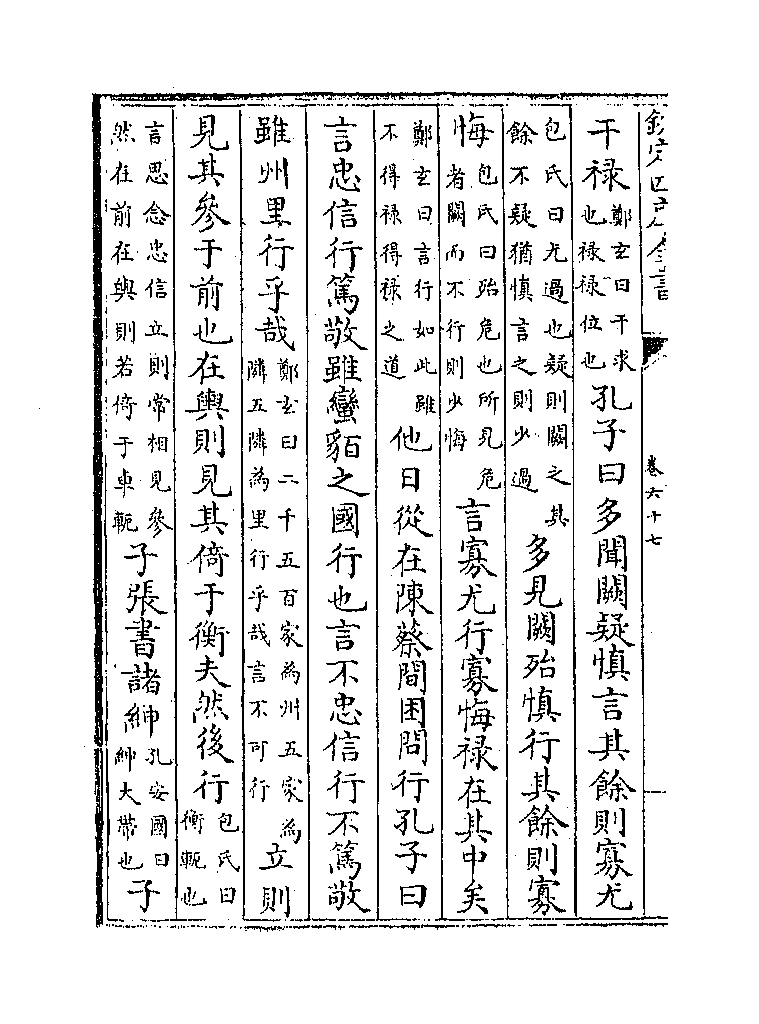 欽定四庫全書
卷六十七
干禄鄭玄曰干求也禄禄位也孔子曰多聞闕疑慎言其餘則寡尤
包氏曰尤過也疑則闕之其餘不疑猶慎言之則少過多見闕殆慎行其餘則寡
悔包氏曰殆危也所見危者闕而不行則少悔言寡尤行寡悔禄在其中矣
鄭玄曰言行如此雖不得禄得禄之道他日從在陳蔡間困問行孔子曰
言忠信行篤敬雖蠻貊之國行也言不忠信行不篤敬
雖州里行乎哉鄭玄曰二千五百家為州五家為隣五隣為里行乎哉言不可行立則
見其參于前也在輿則見其倚于衡夫然後行包氏曰衡軛也
言思念忠信立則常相見參然在前在輿則若倚于車軛子張書諸紳孔安國曰紳大帶也子